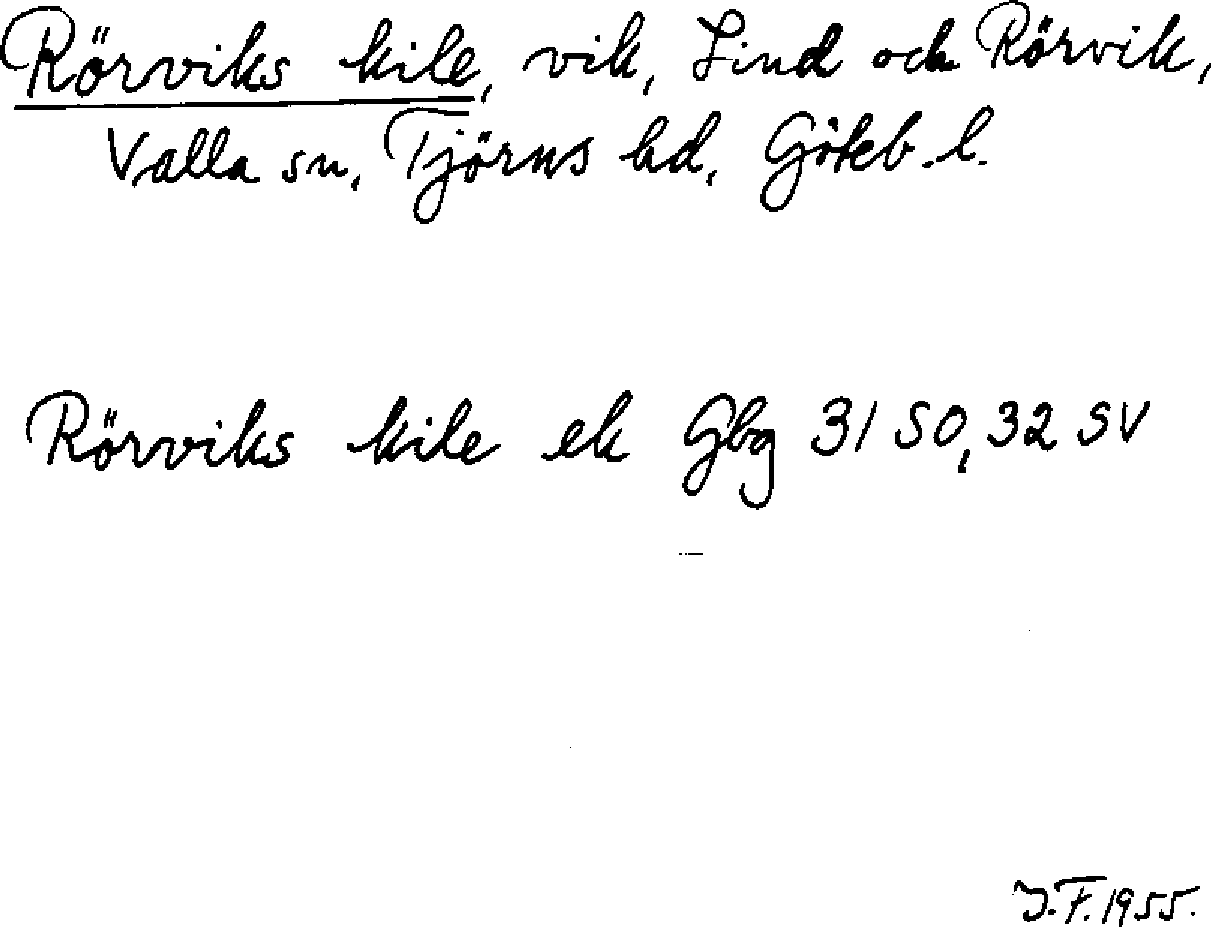 Rörviks kile, vik, Lind och Rörvik,
Valla sn, Tjörns hd, Göteb. l.
Rörviks kile ek Gbg 31 SO, 32 SV
J.F. 1955.